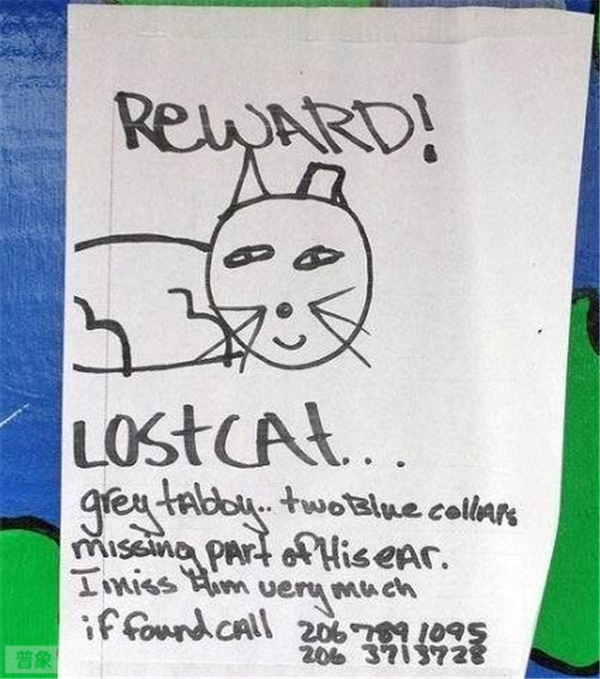 REWARD!
LOST CAT...
grey tabby.. two Blue collars
missing part of His ear.
I miss Him very much
if found call 206 789 1095
206 3713728
普象